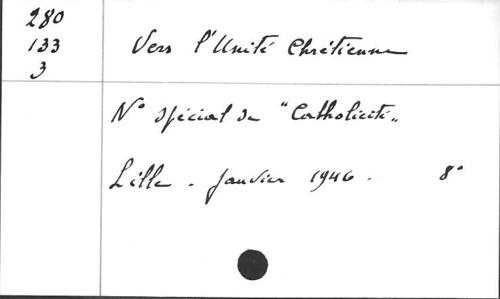 280
133
3
Vers l'Unité Chrétienne
N° spécial de "Catholicité"
Lille - Janvier 1946 - 8°